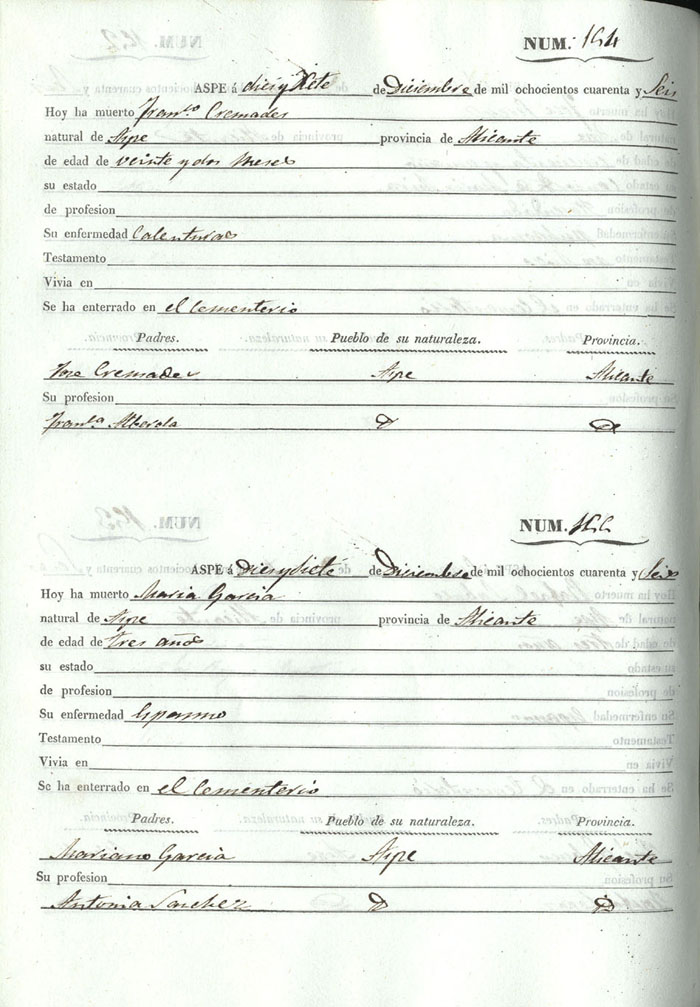 NUM. 154
ASPE á diez y siete de Diciembre de mil ochocientos cuarenta y Seis
Hoy ha muerto Fran.co Cremades
natural de Aspe provincia de Alicante
de edad de veinte y dos meses
su estado
de profesion
Su enfermedad Calenturas
Testamento
Vivia en
Se ha enterrado en el Cementerio
Padres. Pueblo de su naturaleza. Provincia.
Jose Cremades Aspe Alicante
Su profesion
Fran.ca Alberola
NUM. 155
ASPE á diez y siete de Diciembre de mil ochocientos cuarenta y Seis
Hoy ha muerto Maria Garcia
natural de Aspe provincia de Alicante
de edad de tres años
su estado
de profesion
Su enfermedad Espasmo
Testamento
Vivia en
Se ha enterrado en el Cementerio
Padres. Pueblo de su naturaleza. Provincia.
Mariano Garcia Aspe Alicante
Su profesion
Antonia Sanchez